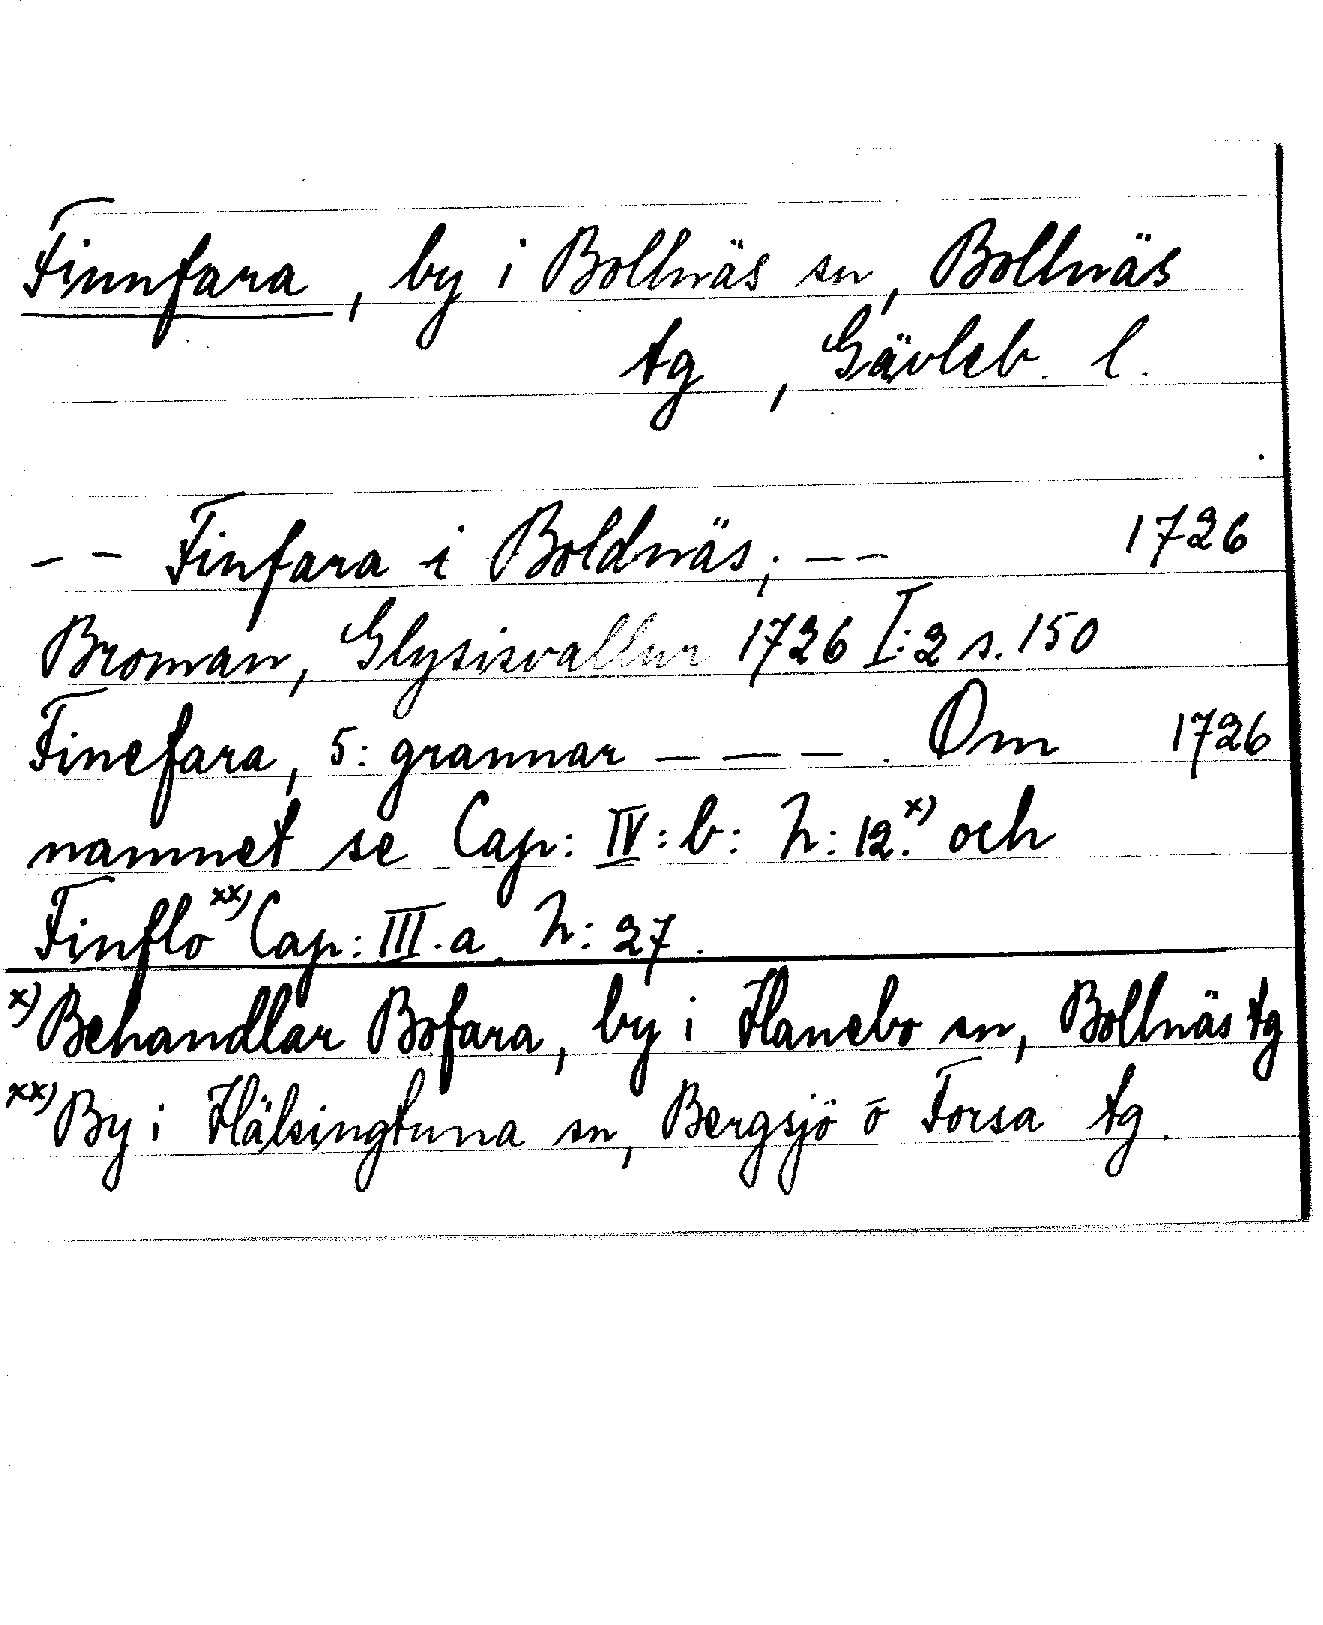 Finnfara, by i Bollnäs sn, Bollnäs
tg, Gävleb. l.
-- Finfara i Boldnäs; -- 1726
Broman, Glysisvallur 1726 I:2 s. 150
Finefara, 5: grannar - - - . Om 1726
namnet se Cap: IV: b: N: 12.x) och
Finflo xx) Cap: III. a. N: 27.
x) Behandlar Bofara, by i Hanebo sn, Bollnäs tg
xx) By i Hälsingtuna sn, Bergsjö o Forsa tg.